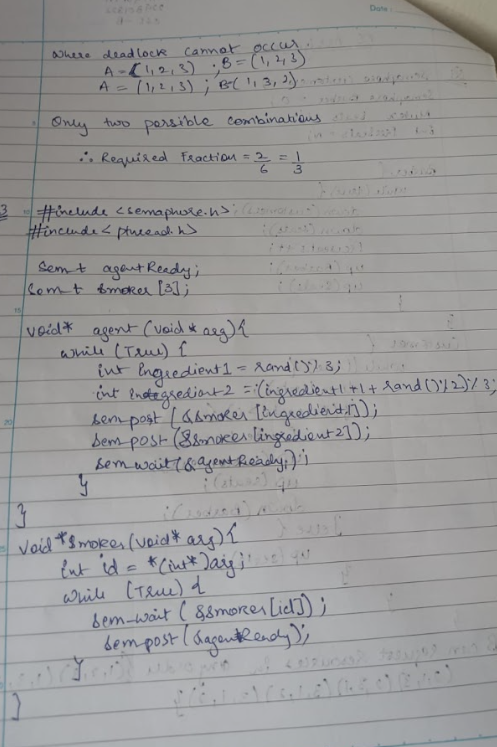 Date
where deadlock cannot occur
A = (1, 2, 3) ; B = (1, 2, 3)
A = (1, 2, 3) ; B = (1, 3, 2)
Only two possible combinations
∴ Required Fraction = 2/6 = 1/3
3 #include <semaphore.h>
#include < pthread.h>
Sem_t agentReady;
Sem_t smoker [3];
void* agent (void* arg) {
while (True) {
int ingredient1 = rand() % 3;
int ingredient2 = (ingredient1 + 1 + rand() % 2) % 3;
sem_post (&smoker [ingredient1]);
sem_post (&smoker [ingredient2]);
sem_wait (&agentReady);
}
}
void *smoker (void* arg) {
int id = *(int*) arg;
while (True) {
sem_wait (&smoker [id]);
sem_post (&agentReady);
}
}